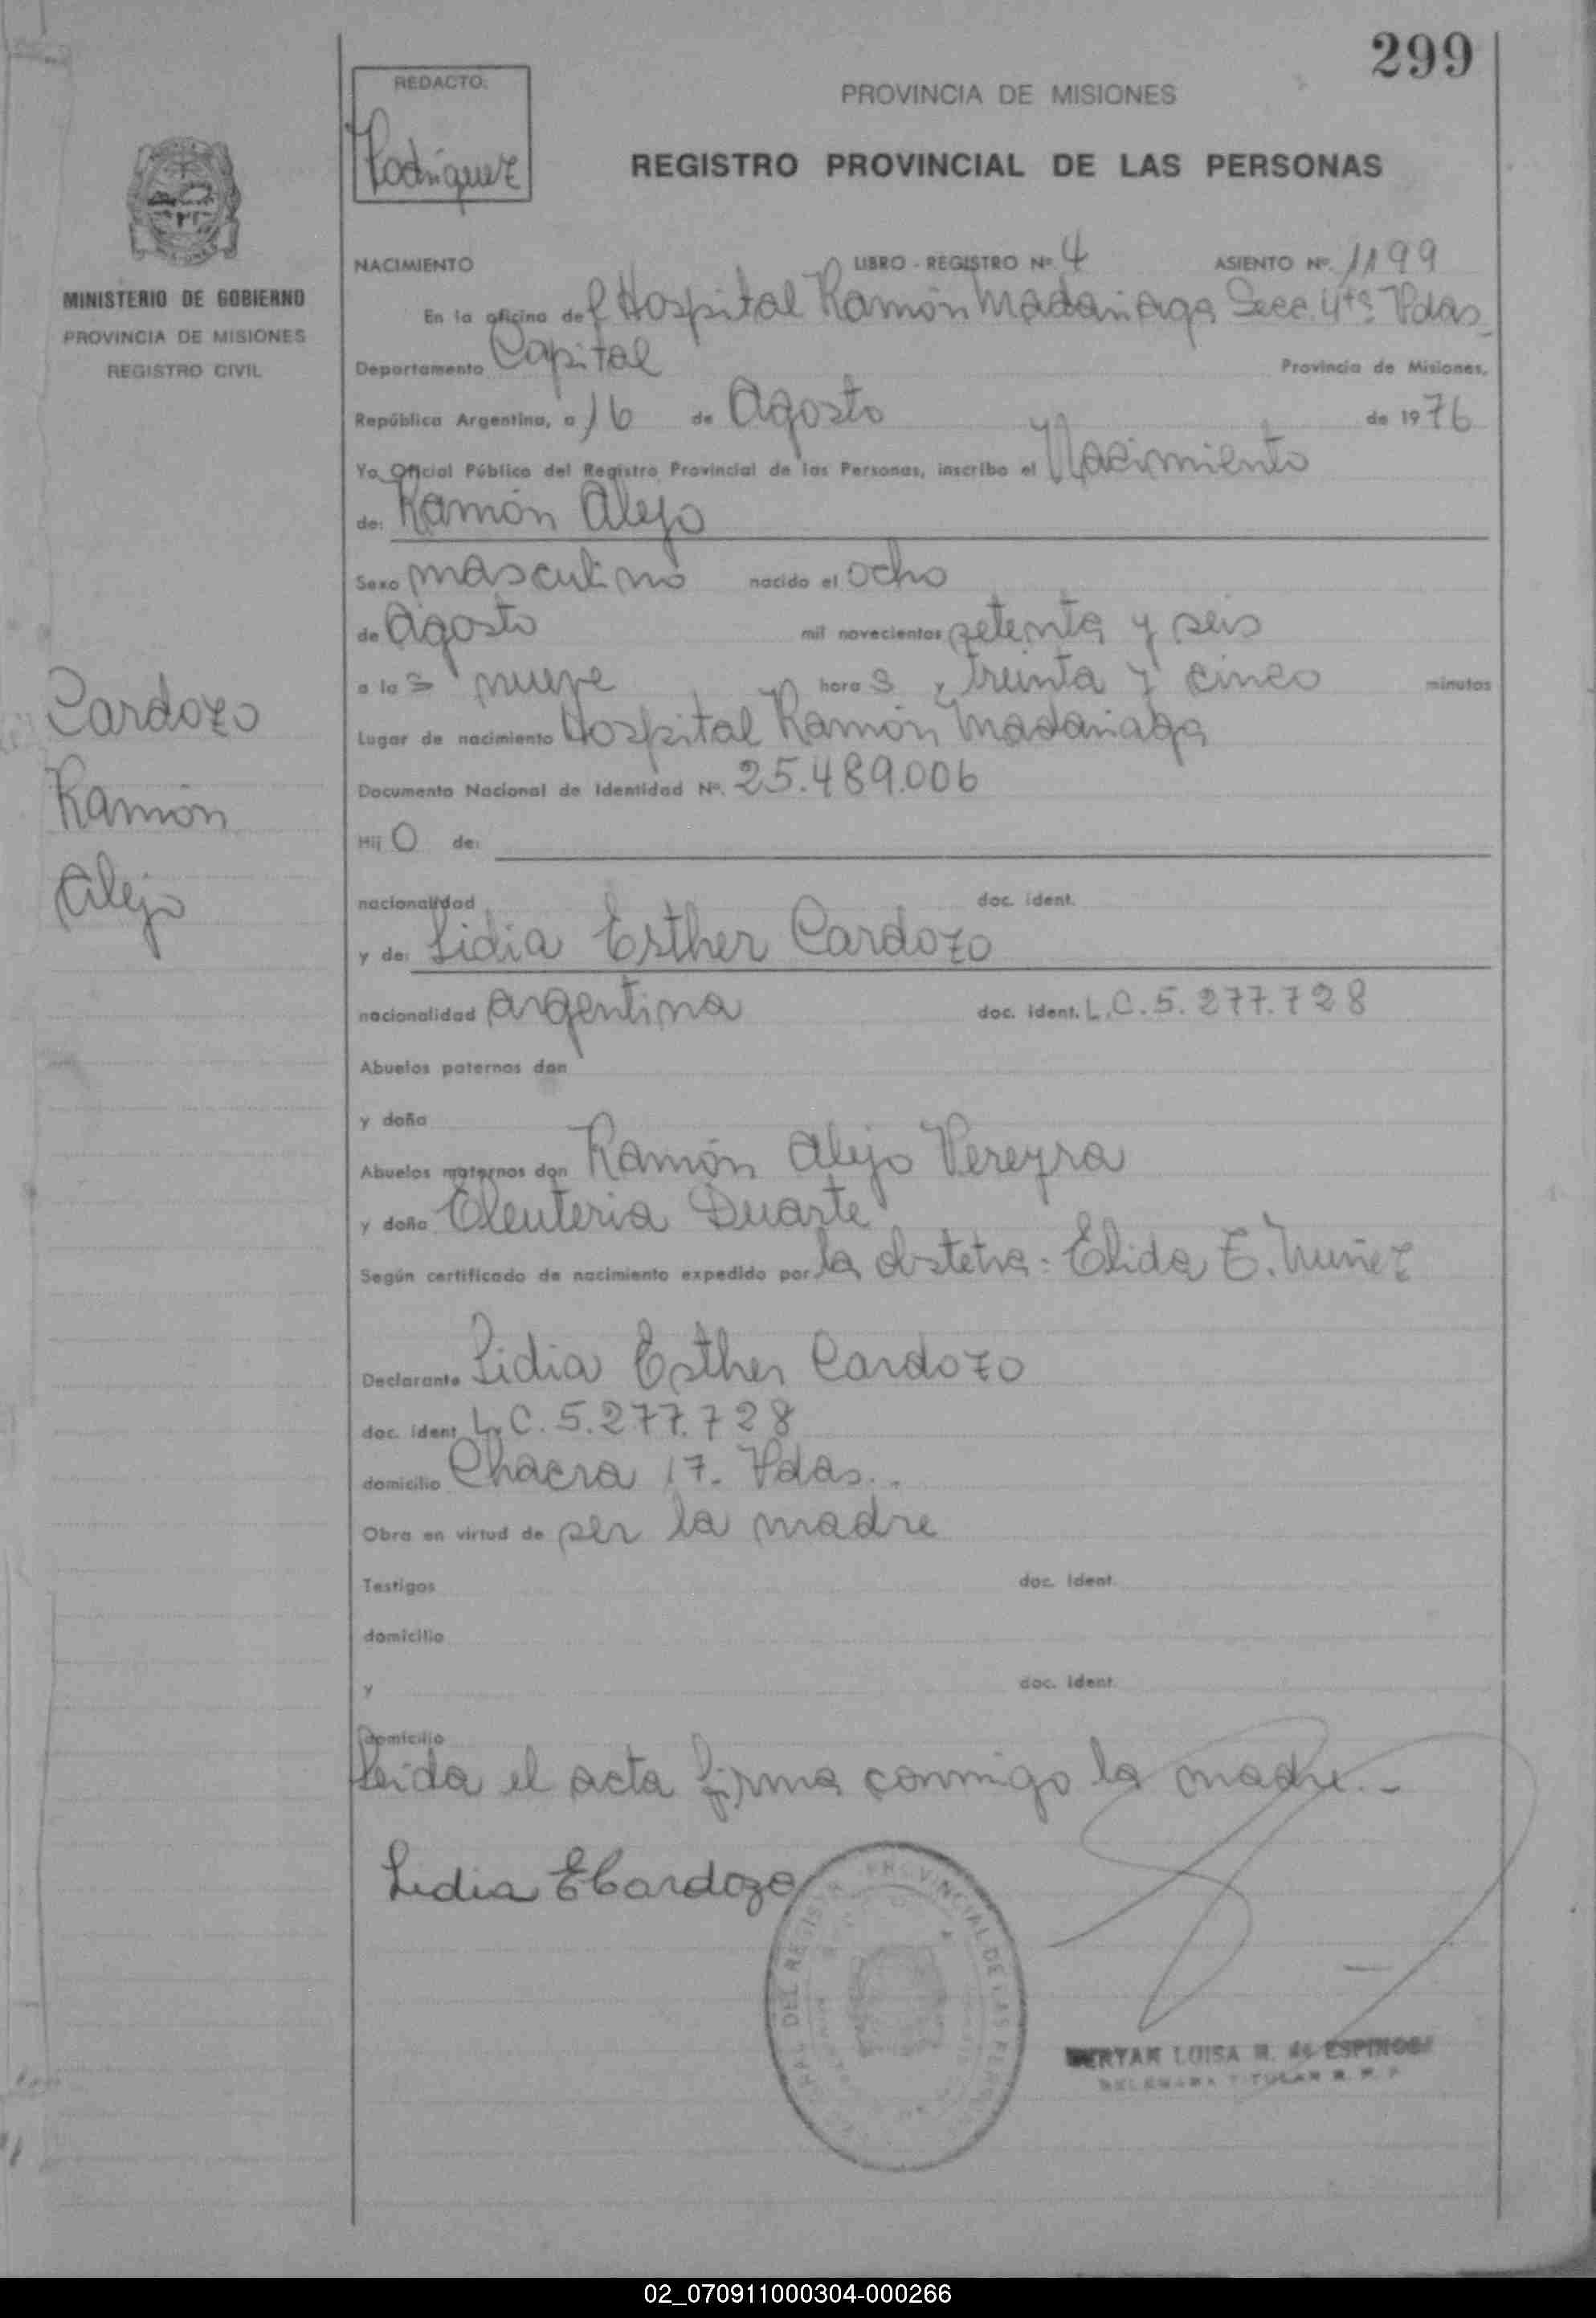 299
REDACTO.
Rodríguez
PROVINCIA DE MISIONES
REGISTRO PROVINCIAL DE LAS PERSONAS
MINISTERIO DE GOBIERNO
PROVINCIA DE MISIONES
REGISTRO CIVIL
Cardozo
Ramón
Alejo
NACIMIENTO LIBRO - REGISTRO Nº 4 ASIENTO Nº. 1199
En la oficina del Hospital Ramón Madariaga Secc. 4ta Pdas
Departamento Capital Provincia de Misiones,
República Argentina, a 16 de Agosto de 1976
Yo Oficial Público del Registro Provincial de las Personas, inscribo el Nacimiento
de: Ramón Alejo
Sexo masculino nacido el ocho
de Agosto mil novecientos setenta y seis
a las nueve horas y treinta y cinco minutos
Lugar de nacimiento Hospital Ramón Madariaga
Documento Nacional de Identidad Nº. 25.489.006
Hijo de:
nacionalidad doc. ident.
y de: Lidia Esther Cardozo
nacionalidad argentina doc. ident. L.C. 5.277.728
Abuelos paternos don
y doña
Abuelos maternos don Ramón Alejo Pereyra
y doña Eleuteria Duarte
Según certificado de nacimiento expedido por la obstetra: Elida E. Nuñez
Declarante Lidia Esther Cardozo
doc. ident. L.C. 5.277.728
domicilio Chacra 17. Pdas..
Obra en virtud de ser la madre
Testigos doc. ident.
domicilio
y doc. ident.
domicilio
Leida el acta firma conmigo la madre.-
Lidia E Cardozo
DEL REGISTRO PROVINCIAL DE LAS
LUISA M. de ESPINOSA
DELEGADA TITULAR R. P. P.
02_070911000304-000266